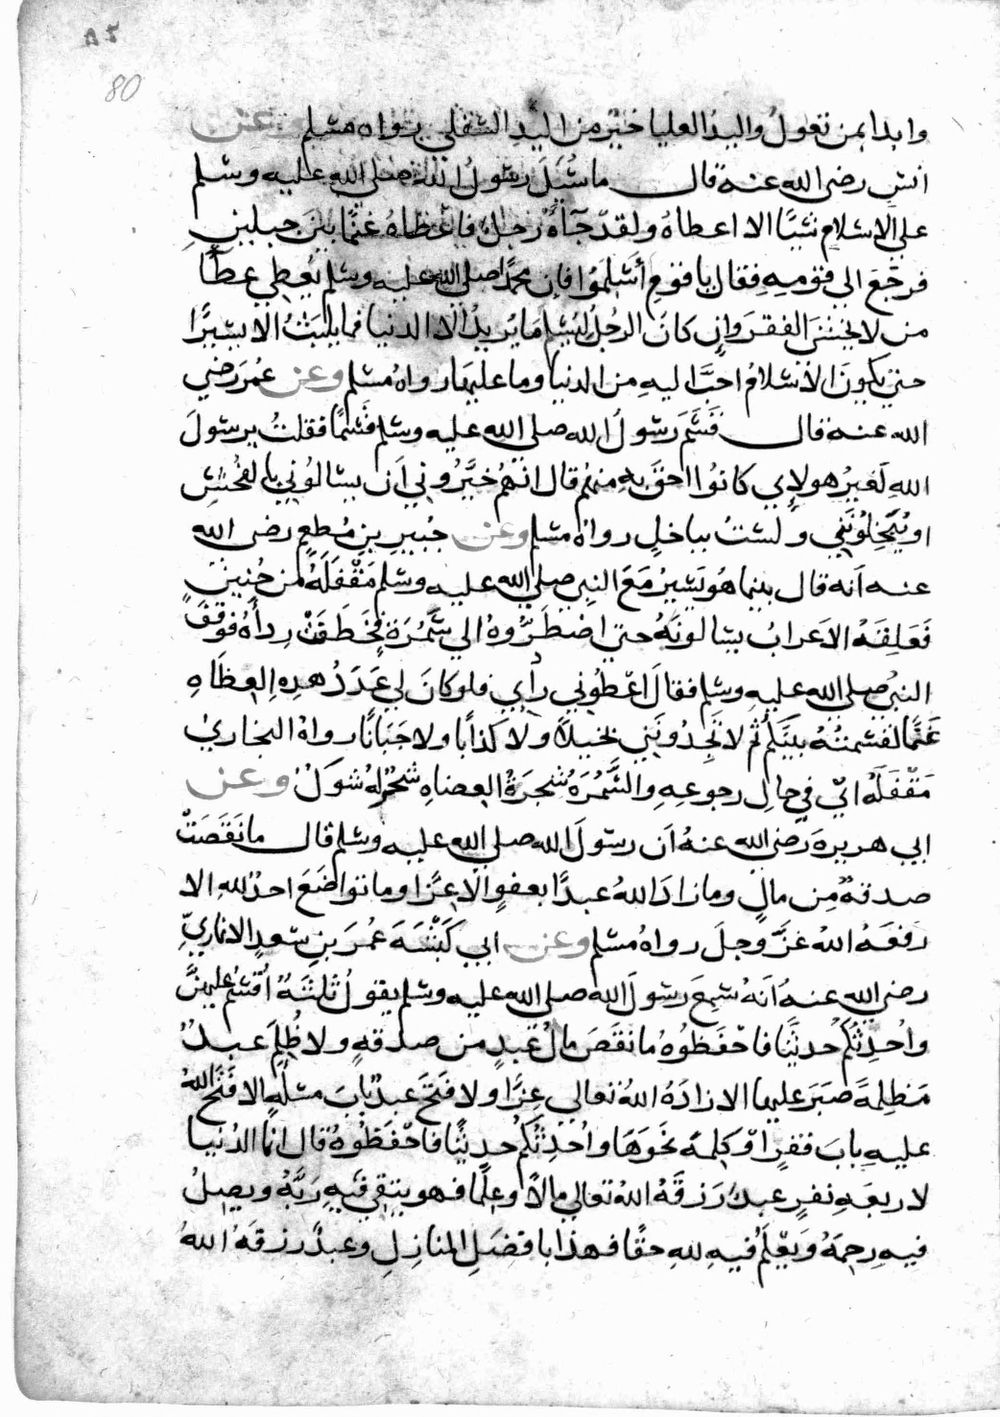 ٨٢
80
وابدا بمن تعول واليد العليا خير من اليد السفلى رواه مسلم وعن
انس رضى الله عنه قال ما سُئل رسول الله صلى الله عليه وسلم
على الاسلام شيئا الا اعطاه ولقد جآءه رجل فاعطاه غنما بين جبلين
فرجع الي قومه فقال يا قوم أسلموا فإن محمدا صلى الله عليه وسلم يُعطي عطآ
من لا يخشى الفقر وإن كان الرجل ليسلم ما يريد الا الدنيا فما يلبث الا يسيرًا
حتى يكون الاسلام احبَّ اليه من الدنيا وما عليها رواه مسلم وعن عمر رضي
الله عنه قال قسم رسول الله صلى الله عليه وسلم قسما فقلت يرسول
الله لَغير هولاءي كانوا احق به منهم قال انهم خيَّروني أن يسالوني بالفحش
او يُبَخِّلونني ولست بباخلٍ رواه مسلم وعن جُبير بن مُطعم رضى الله
عنه انه قال بينما هو يسير مع النبي صلى الله عليه وسلم مَقْفَلَهُ من حُنين
فَعَلِقَهُ الاعراب يسالونه حتى اضطَرُّوه الي سَمُرَة فخَطَفَتْ رِدآه فوقف
النبي صلى الله عليه وسلم فقال اعْطُوني ردأي فلو كان لي عَدَدُ هذه العضاه
غنمًا لقسمته بينكم ثم لا تجدونني بخيلاً ولا كذابا ولا جبانًا رواه البخاري
مَقْفَلَهُ اي في حال رجوعه والسَّمُرَة شجرة العضاه شجر له شوك وعن
ابي هريرة رضى الله عنه أن رسول الله صلى الله عليه وسلم قال ما نَقَصَتْ
صدقةٌ من مال وما زاد الله عبدًا بعفوٍ الا عزًا وما تواضع احد لله الا
رفعه الله عز وجل رواه مسلم وعن ابي كبشة عُمر بن سعد الانماري
رضى الله عنه أنه سمع رسول الله صلى الله عليه وسلم يقول ثلثة أقسم عليهن
واُحدثكم حديثًا فاحفظوه ما نقص مال عبدٍ من صدقةٍ ولا ظُلم عبدٌ
مَظلِمةً صبر عليها الا زاده الله تعالي عِزًا ولا فتح عبد باب مسئلةٍ الا فتح الله
عليه باب فقرٍ او كلمة نحوها واُحدثكم حديثًا فاحفظوه قال انما الدنيا
لاربعة نفر عبد رزقه الله تعالي مالاً وعلمًا فهو يتقي فيه ربَّه ويصل
فيه رحمه ويعلم فيه لله حقًا فهذا بافضل المنازل وعبدٌ رزقه الله